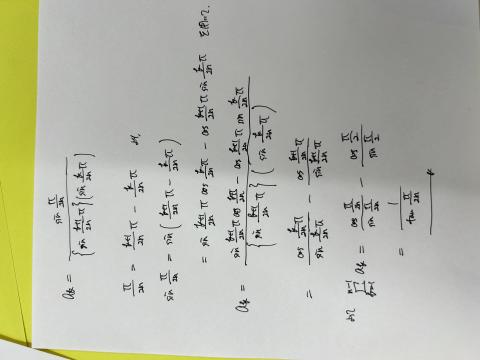 a_k = \frac{\sin\frac{\pi}{2n}}{\{\sin\frac{k+1}{2n}\pi\}\{\sin\frac{k}{2n}\pi\}}
\frac{\pi}{2n} = \frac{k+1}{2n}\pi - \frac{k}{2n}\pi
\sin\frac{\pi}{2n} = \sin(\frac{k+1}{2n}\pi - \frac{k}{2n}\pi)
= \sin\frac{k+1}{2n}\pi \cos\frac{k}{2n}\pi - \cos\frac{k+1}{2n}\pi \sin\frac{k}{2n}\pi
a_k = \frac{\sin\frac{k+1}{2n}\pi \cos\frac{k}{2n}\pi - \cos\frac{k+1}{2n}\pi \sin\frac{k}{2n}\pi}{\{\sin\frac{k+1}{2n}\pi\}(\sin\frac{k}{2n}\pi)}
= \frac{\cos\frac{k}{2n}\pi}{\sin\frac{k}{2n}\pi} - \frac{\cos\frac{k+1}{2n}\pi}{\sin\frac{k+1}{2n}\pi}
a_k = \frac{\cos\frac{\pi}{2n}}{\sin\frac{\pi}{2n}} - \frac{\cos\frac{\pi}{2}}{\sin\frac{\pi}{2}}
= \frac{1}{\tan\frac{\pi}{2n}}